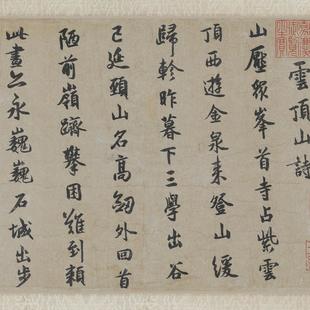 雲頂山詩
山壓衆峯首寺占紫雲
頂西遊金泉來登山緩
歸軫昨暮下三學出谷
已延頸山名高劒外回首
陋前嶺躋攀困難到頼
此晝亦永巍巍石城出步